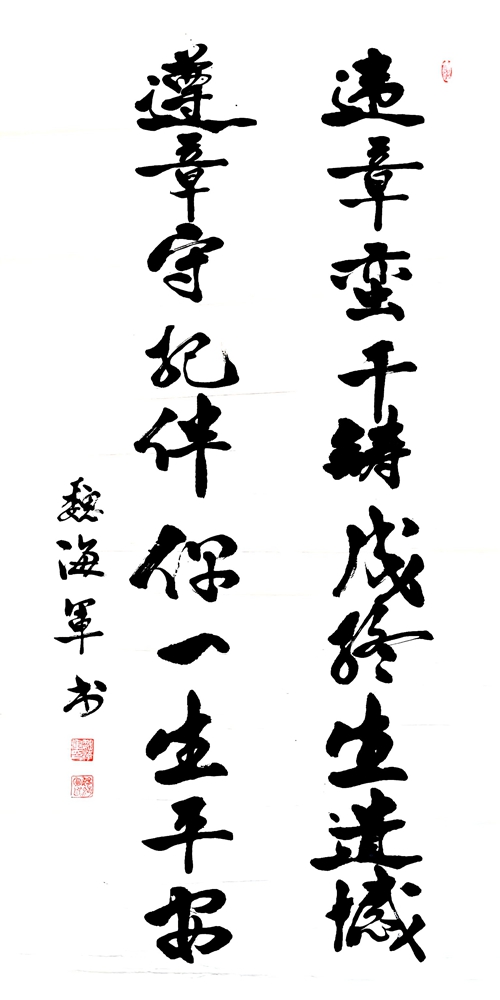 违章蛮干铸成终生遗憾
遵章守纪伴偶一生平安
魏海军书